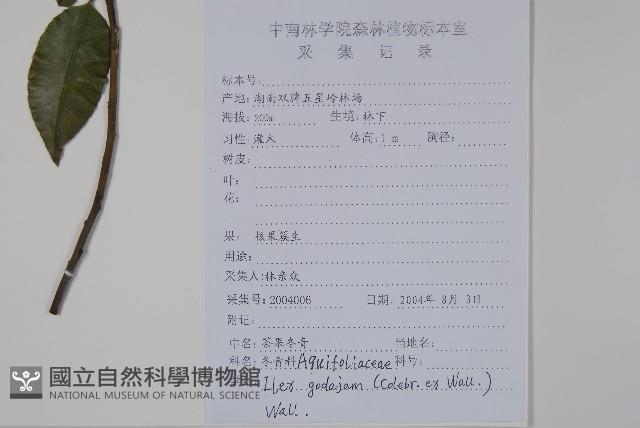 中南林学院森林植物标本室
采 集 记 录
标本号:
产地: 湖南双牌五星岭林场
海拔: 200m 生境: 林下
习性: 灌木 体高: 1 m 胸径:
树皮:
叶:
花:
果: 核果簇生
用途:
采集人: 林亲众
采集号: 2004006 日期: 2004年 8月 3日
附记:
中名: 茶果冬青 当地名:
科名: 冬青科 Aquifoliaceae 科号:
Ilex godajam (Colebr. ex Wall.)
Wall.
國立自然科學博物館
NATIONAL MUSEUM OF NATURAL SCIENCE